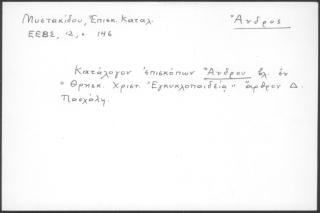 Μυστακίδου, Ἐπισκ. Καταλ. Ἄνδρος
ΕΕΒΣ, 12, σ. 146
Κατάλογον ἐπισκόπων Ἄνδρου βλ. ἐν
"Θρησκ. Χριστ. Ἐγκυκλοπαιδείᾳ" ἄρθρον Δ.
Πασχάλη.